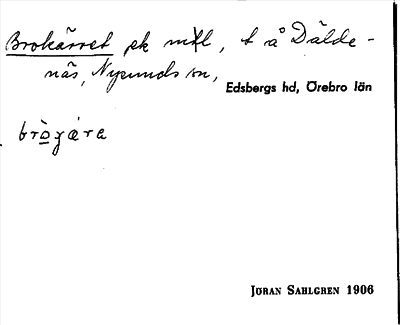 Brokärret
, t å Dälde-
näs, Nysunds sn,
Edsbergs hd, Örebro län
JÖRAN SAHLGREN 1906